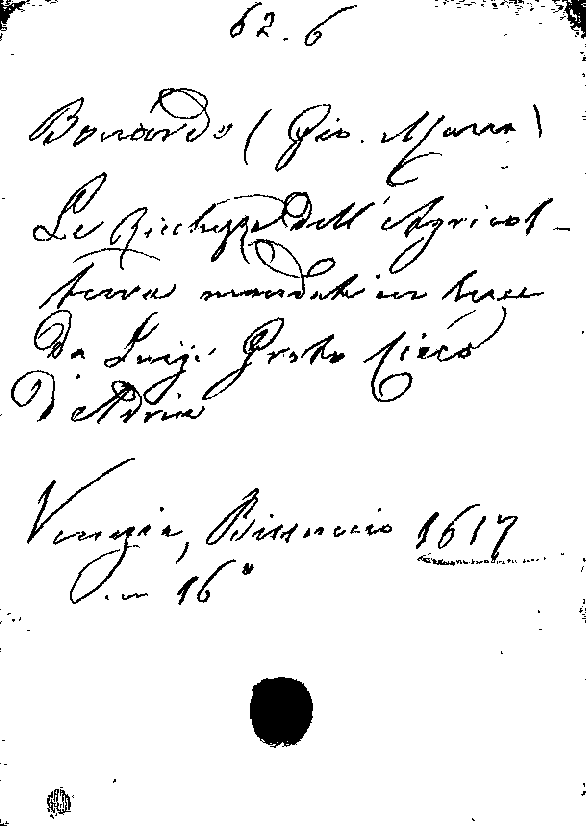 62.6
Bonardo (Gio. Maria)
Le Ricchezze dell'Agricol-
tura mandate in luce
Da Luigi Groto Cieco
D'Adria
Venezia, Bissuccio 1617
in 16°